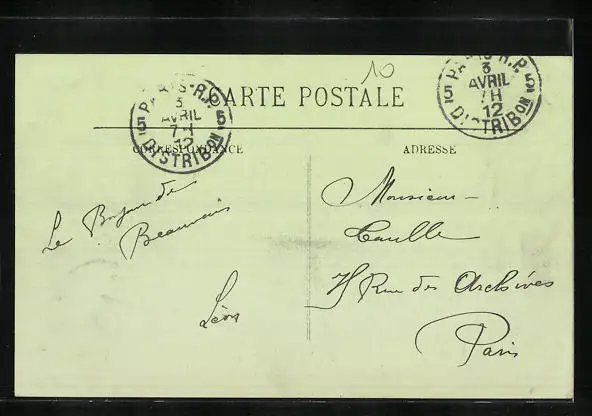 10
CARTE POSTALE
PARIS-R.P.
5 5
3
AVRIL
7H
12
DISTRIBON
PARIS-R.P.
5 5
3
AVRIL
7H
12
DISTRIBON
CORRESPONDANCE
ADRESSE
Le Bonjour de
Beauvais
Léon
Monsieur
Caulle
Rue des Archives
Paris